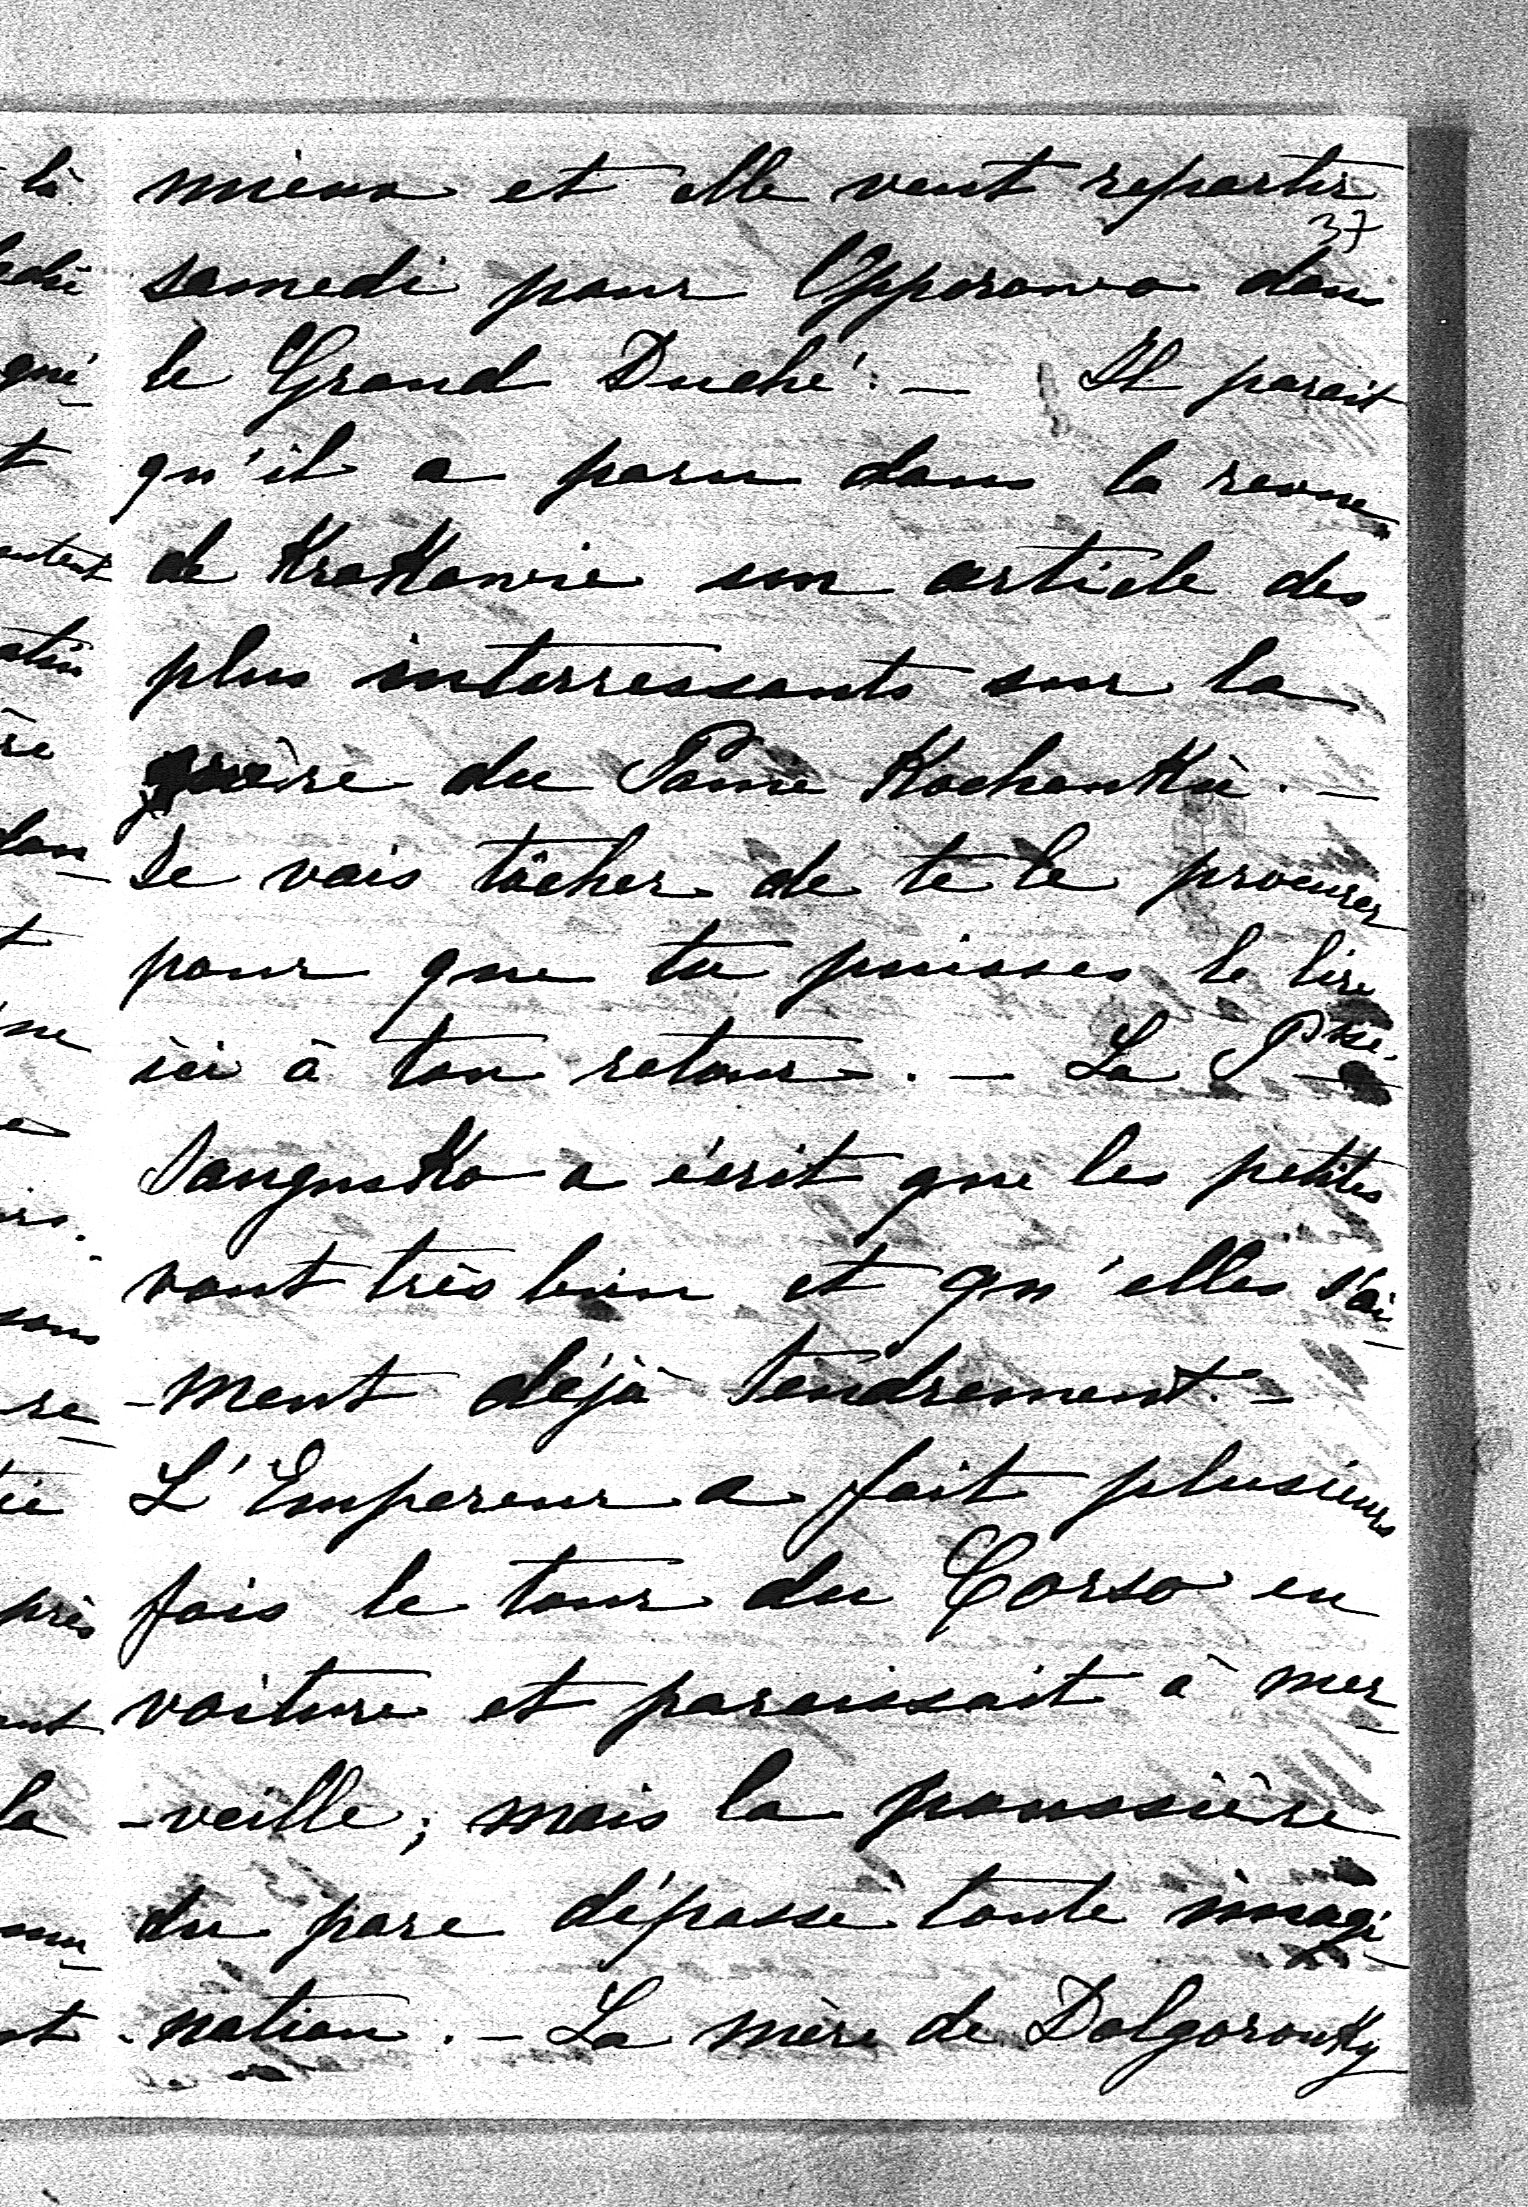 mieux et elle veut repartir
37
samedi pour Opporowo dans
le Grand Duché. — Il parait
qu'il a paru dans la revue
de Krakowie un article des
plus interressants sur la
du Panie Kochanku. —
Je vais tâcher de te le procurer
pour que tu puisses le lire
ici à ton retour. — La Psse.
Sangusko a écrit que les petites
vont très bien et qu'elles s'ai-
-ment déjà tendrement. —
L'Empereur a fait plusieurs
fois le tour du Corso en
voiture et paraissait à mer-
-veille; mais la poussière
du parc dépasse toute imagi-
-nation. — La mère de Dolgorouky